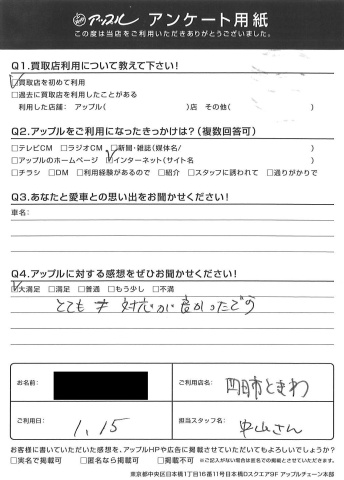 アップル アンケート用紙
この度は当店をご利用いただきありがとうございました。
Q1.買取店利用について教えて下さい!
☑買取店を初めて利用
□過去に買取店を利用したことがある
利用した店舗: アップル( )店 その他( )
Q2.アップルをご利用になったきっかけは?(複数回答可)
□テレビCM □ラジオCM □新聞・雑誌(媒体名/ )
□アップルのホームページ ☑インターネット(サイト名 )
□チラシ □DM □利用経験があるので □紹介 □スタッフに誘われて □通りがかりで
Q3.あなたと愛車との思い出をお聞かせください!
車名:
Q4.アップルに対する感想をぜひお聞かせください!
☑大満足 □満足 □普通 □もう少し □不満
とても 対応が良かったです
お名前:
ご利用店名: 四日市ときわ
ご利用日: 1.15
担当スタッフ名: 中山さん
お客様に書いていただいた感想を、アップルHPや広告に掲載させていただいてもよろしいでしょうか?
□実名で掲載可 □匿名なら掲載可 □掲載不可 ※ご記入がない場合は匿名での掲載とさせていただきます。
東京都中央区日本橋1丁目16番11号日本橋Dスクエア9F アップルチェーン本部